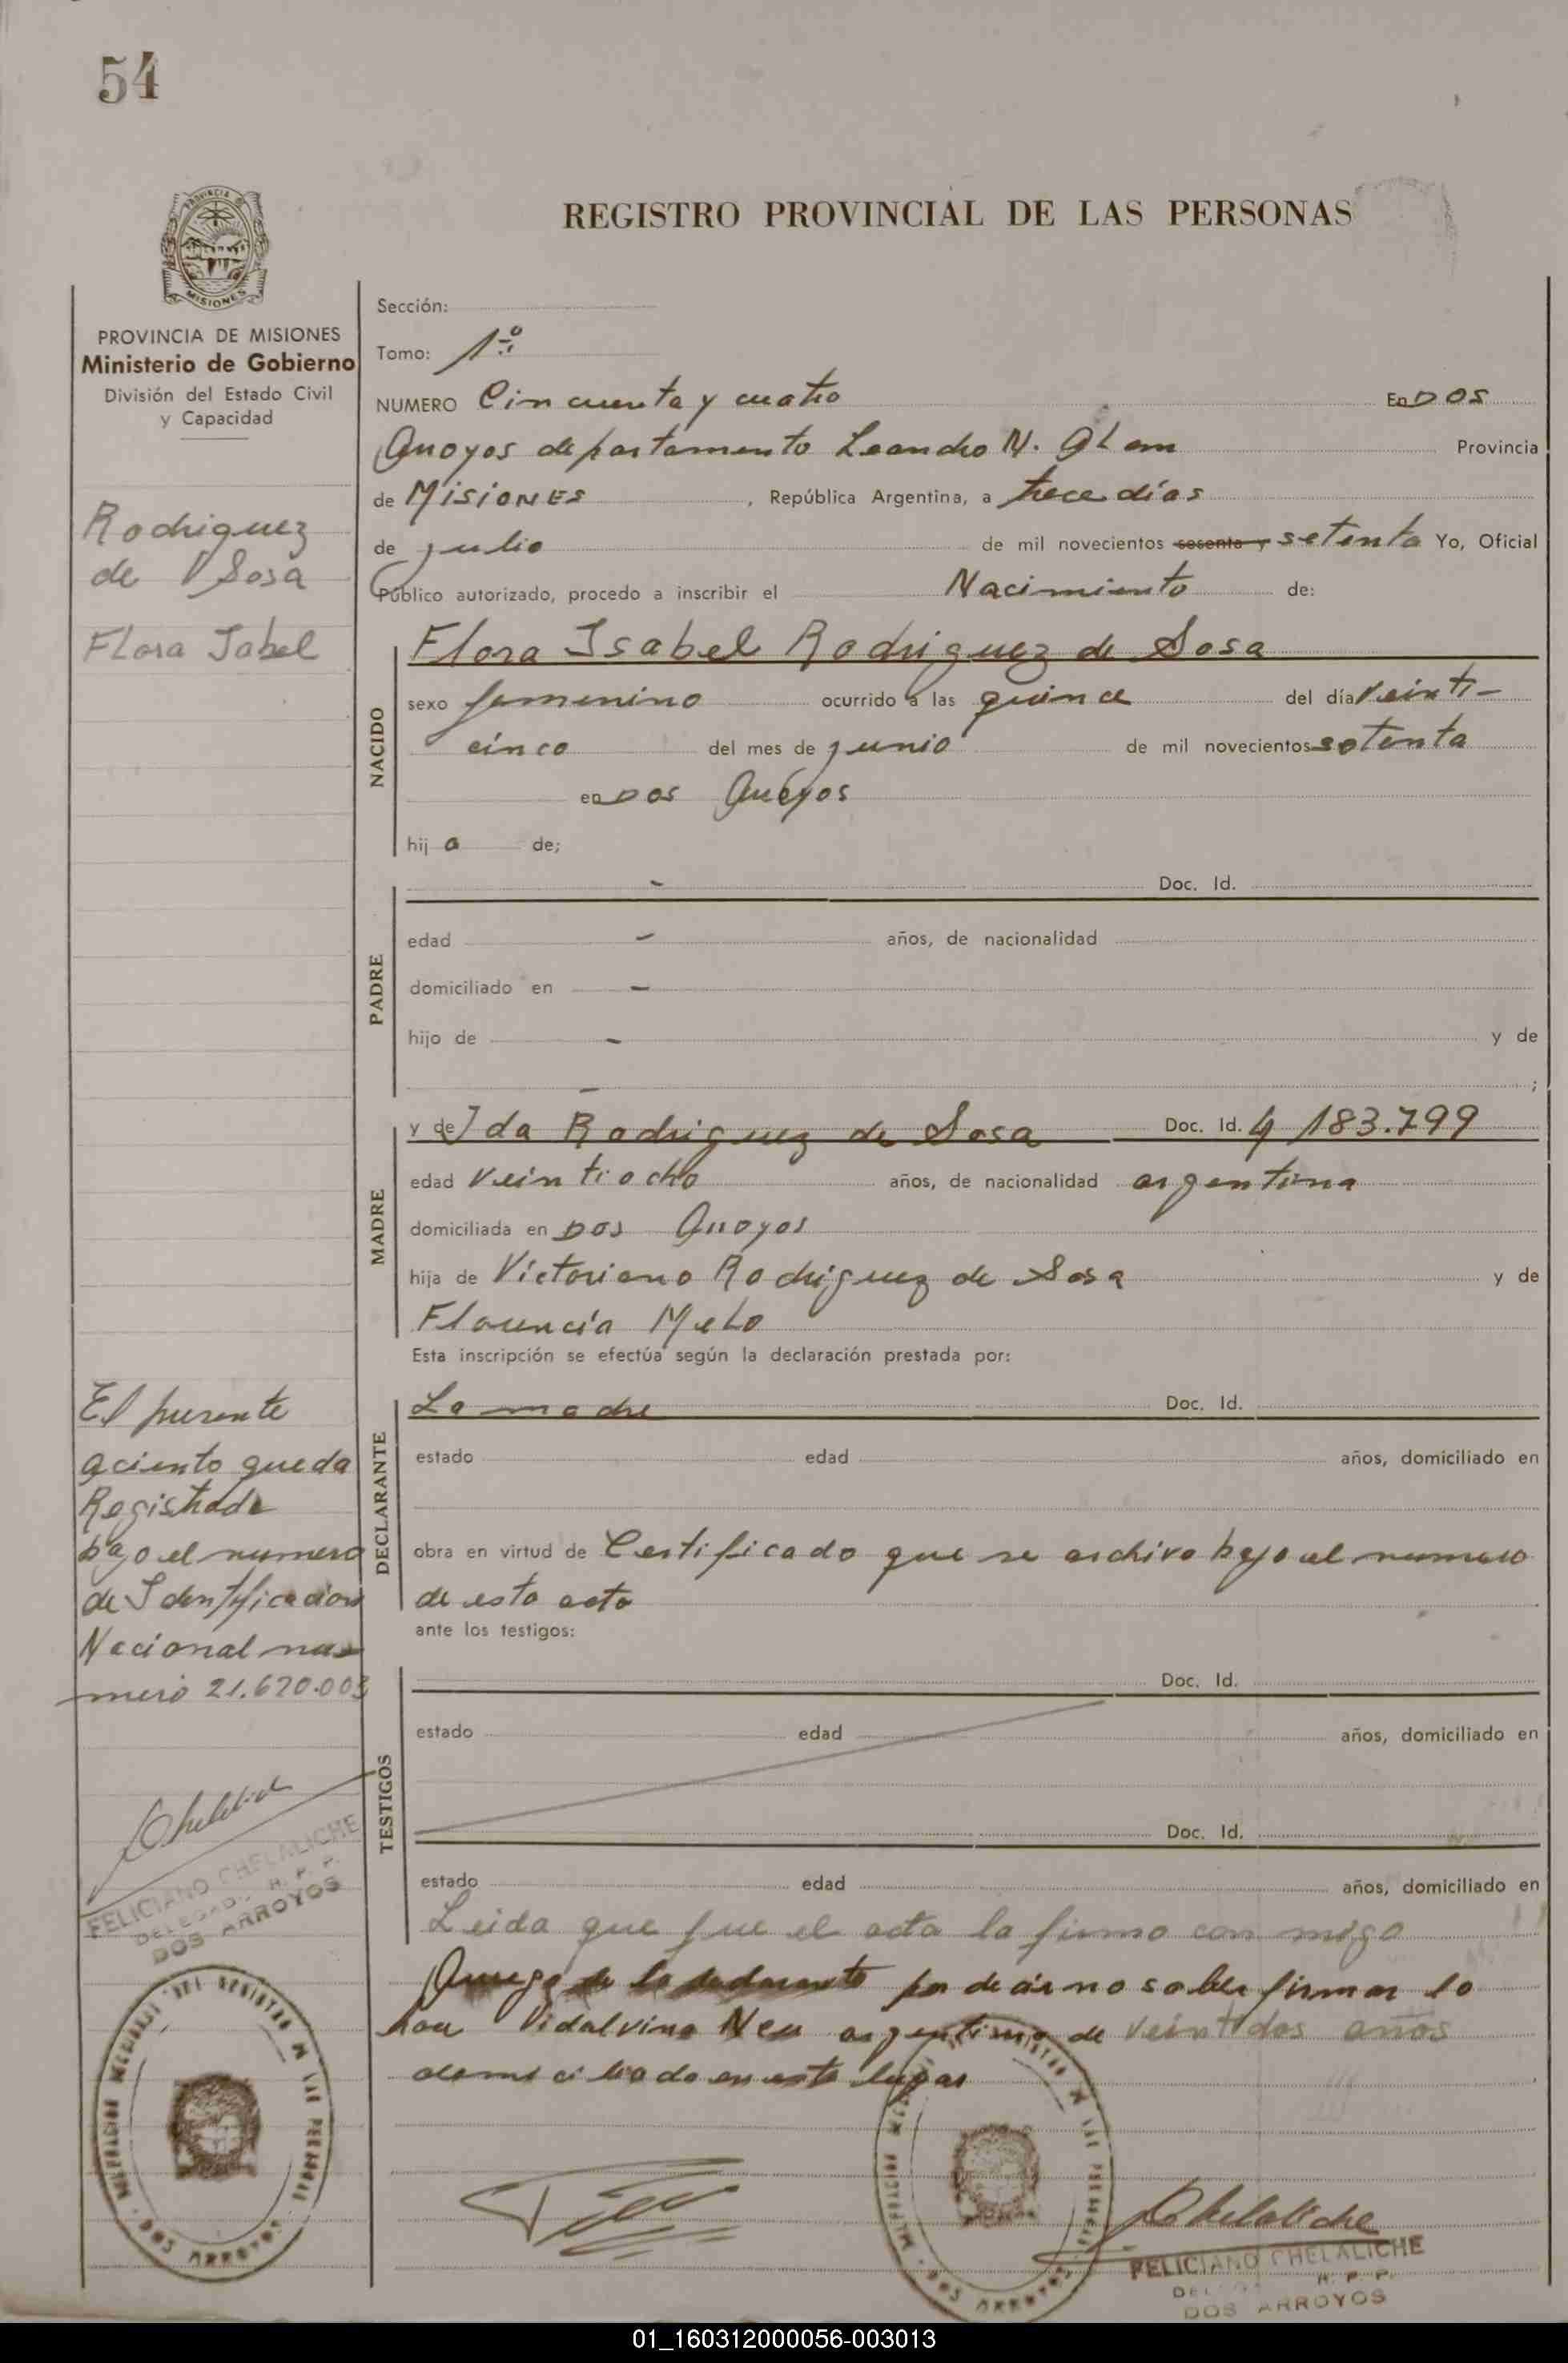 54
PROVINCIA DE MISIONES
REGISTRO PROVINCIAL DE LAS PERSONAS
PROVINCIA DE MISIONES
Ministerio de Gobierno
División del Estado Civil
y Capacidad
Rodriguez
de Sosa
Flora Isabel
Sección:
Tomo: 1º
NUMERO Cincuenta y cuatro En DOS
Arroyos departamento Leandro N. Alem Provincia
de MISIONES, República Argentina, a trece días
de julio de mil novecientos sesenta y setenta Yo, Oficial
Público autorizado, procedo a inscribir el Nacimiento de:
NACIDO
Flora Isabel Rodriguez de Sosa
sexo femenino ocurrido a las quince del día veinti-
cinco del mes de junio de mil novecientos setenta
en DOS Arroyos
hij a de;
PADRE
- Doc. Id.
edad - años, de nacionalidad
domiciliado en -
hijo de - y de
- ;
MADRE
y de Ida Rodriguez de Sosa Doc. Id. 4 183.799
edad veintiocho años, de nacionalidad argentina
domiciliada en DOS Arroyos
hija de Victoriano Rodriguez de Sosa y de
Florencia Melo
Esta inscripción se efectúa según la declaración prestada por:
DECLARANTE
La madre Doc. Id.
estado edad años, domiciliado en
obra en virtud de Certificado que se archiva bajo el numero
de esta acta
ante los testigos:
TESTIGOS
Doc. Id.
estado edad años, domiciliado en
Doc. Id.
estado edad años, domiciliado en
Leida que fue el acta la firmo con migo
Aruego de la declarante por decir no saber firmar lo
hace Vidalvino Neu argentino de veintidos años
domiciliado en este lugar
El presente
aciento queda
Registrado
bajo el numero
de Identificacion
Nacional nu-
mero 21.670.003
Chelaliche
FELICIANO CHELALICHE
DELEGADO R. P. P.
DOS ARROYOS
DEL REGISTRO DE LAS PERSONAS
DOS ARROYOS
Chelaliche
FELICIANO CHELALICHE
R. P. P.
DOS ARROYOS
01_160312000056-003013